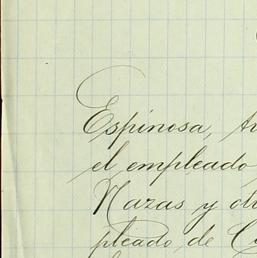 Espinosa,
el empleado
Nazas y
pleado de